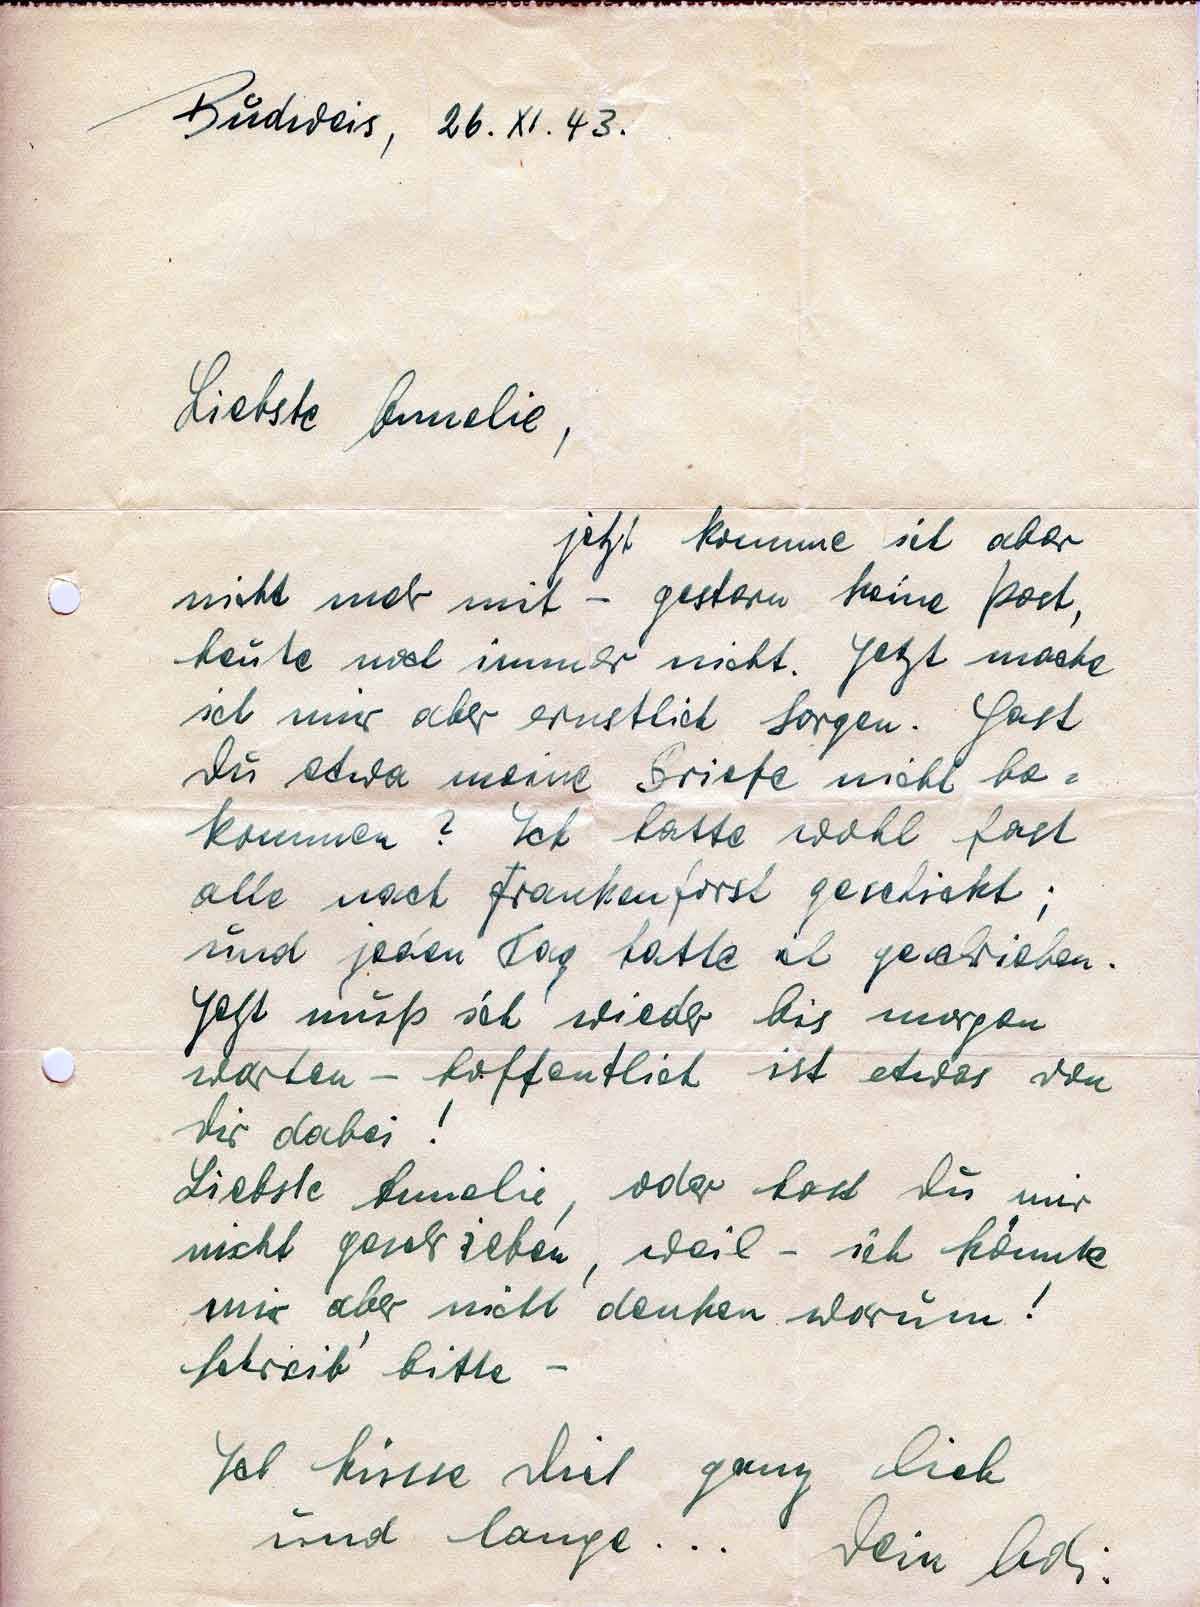 Budweis, 26. XI. 43.
Liebste Annelie,
jetzt komme ich aber
nicht mehr mit – gestern keine Post,
heute noch immer nicht. Jetzt mache
ich mir aber ernstlich Sorgen. Hast
Du etwa meine Briefe nicht be=
kommen? Ich hatte wohl fast
alle nach Frankenforst geschickt;
und jeden Tag hatte ich geschrieben.
Jetzt muß ich wieder bis morgen
warten – hoffentlich ist etwas von
Dir dabei!
Liebste Annelie, oder hast Du mir
nicht geschrieben, weil – ich könnte
mir aber nicht denken warum!
Schreib' bitte –
Ich küsse Dich ganz lieb
und lange... Dein Adi.